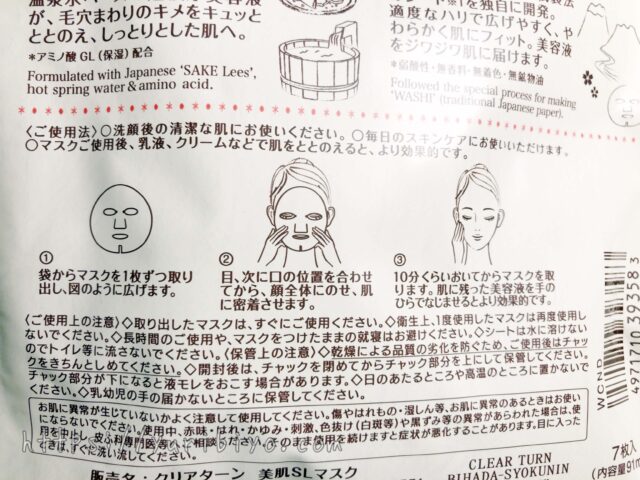 が、毛穴まわりのキメをキュッと
ととのえ、しっとりした肌へ。
*アミノ酸 GL（保湿）配合
Formulated with Japanese ‘SAKE Lees’,
hot spring water & amino acid.
を独自に開発。
適度なハリで広げやすく、や
わらかく肌にフィット。美容液
をジワジワ肌に届けます。
*弱酸性・無香料・無着色・無鉱物油
Followed the special process for making
‘WASHI’ (traditional Japanese paper).
〈ご使用法〉○洗顔後の清潔な肌にお使いください。○毎日のスキンケアにお使いいただけます。
○マスクご使用後、乳液、クリームなどで肌をととのえると、より効果的です。
①
袋からマスクを1枚ずつ取り
出し、図のように広げます。
②
目、次に口の位置を合わせ
てから、顔全体にのせ、肌
に密着させます。
③
10分くらいおいてからマスクを取
ります。肌に残った美容液を手の
ひらでなじませるとより効果的です。
〈ご使用上の注意〉◇取り出したマスクは、すぐにご使用ください。◇衛生上、1度使用したマスクは再度使用し
ないでください。◇長時間のご使用や、マスクをつけたままの就寝はお避けください。◇シートは水に溶けない
のでトイレ等に流さないでください。〈保管上の注意〉◇乾燥による品質の劣化を防ぐため、ご使用後はチャッ
クをきちんとしめてください。◇開封後は、チャックを閉めてからチャック部分を上にして保管してください。
チャック部分が下になると液モレをおこす場合があります。◇日のあたるところや高温のところに置かないで
ください。◇乳幼児の手の届かないところに保管してください。
お肌に異常が生じていないかよく注意して使用してください。傷やはれもの・湿しん等、お肌に異常のあるときはお使い
にならないでください。使用中、赤味・はれ・かゆみ・刺激、色抜け（白斑等）や黒ずみ等の異常があらわれた場合は、使
用を中止し、皮ふ科専門医等にご相談ください。そのまま使用を続けますと症状が悪化することがあります。目に入った
ときは、すぐに洗い流してください。
販売名：クリアターン 美肌SLマスク
CLEAR TURN
BIHADA-SYOKUNIN
7枚入
WCND
4971710393583